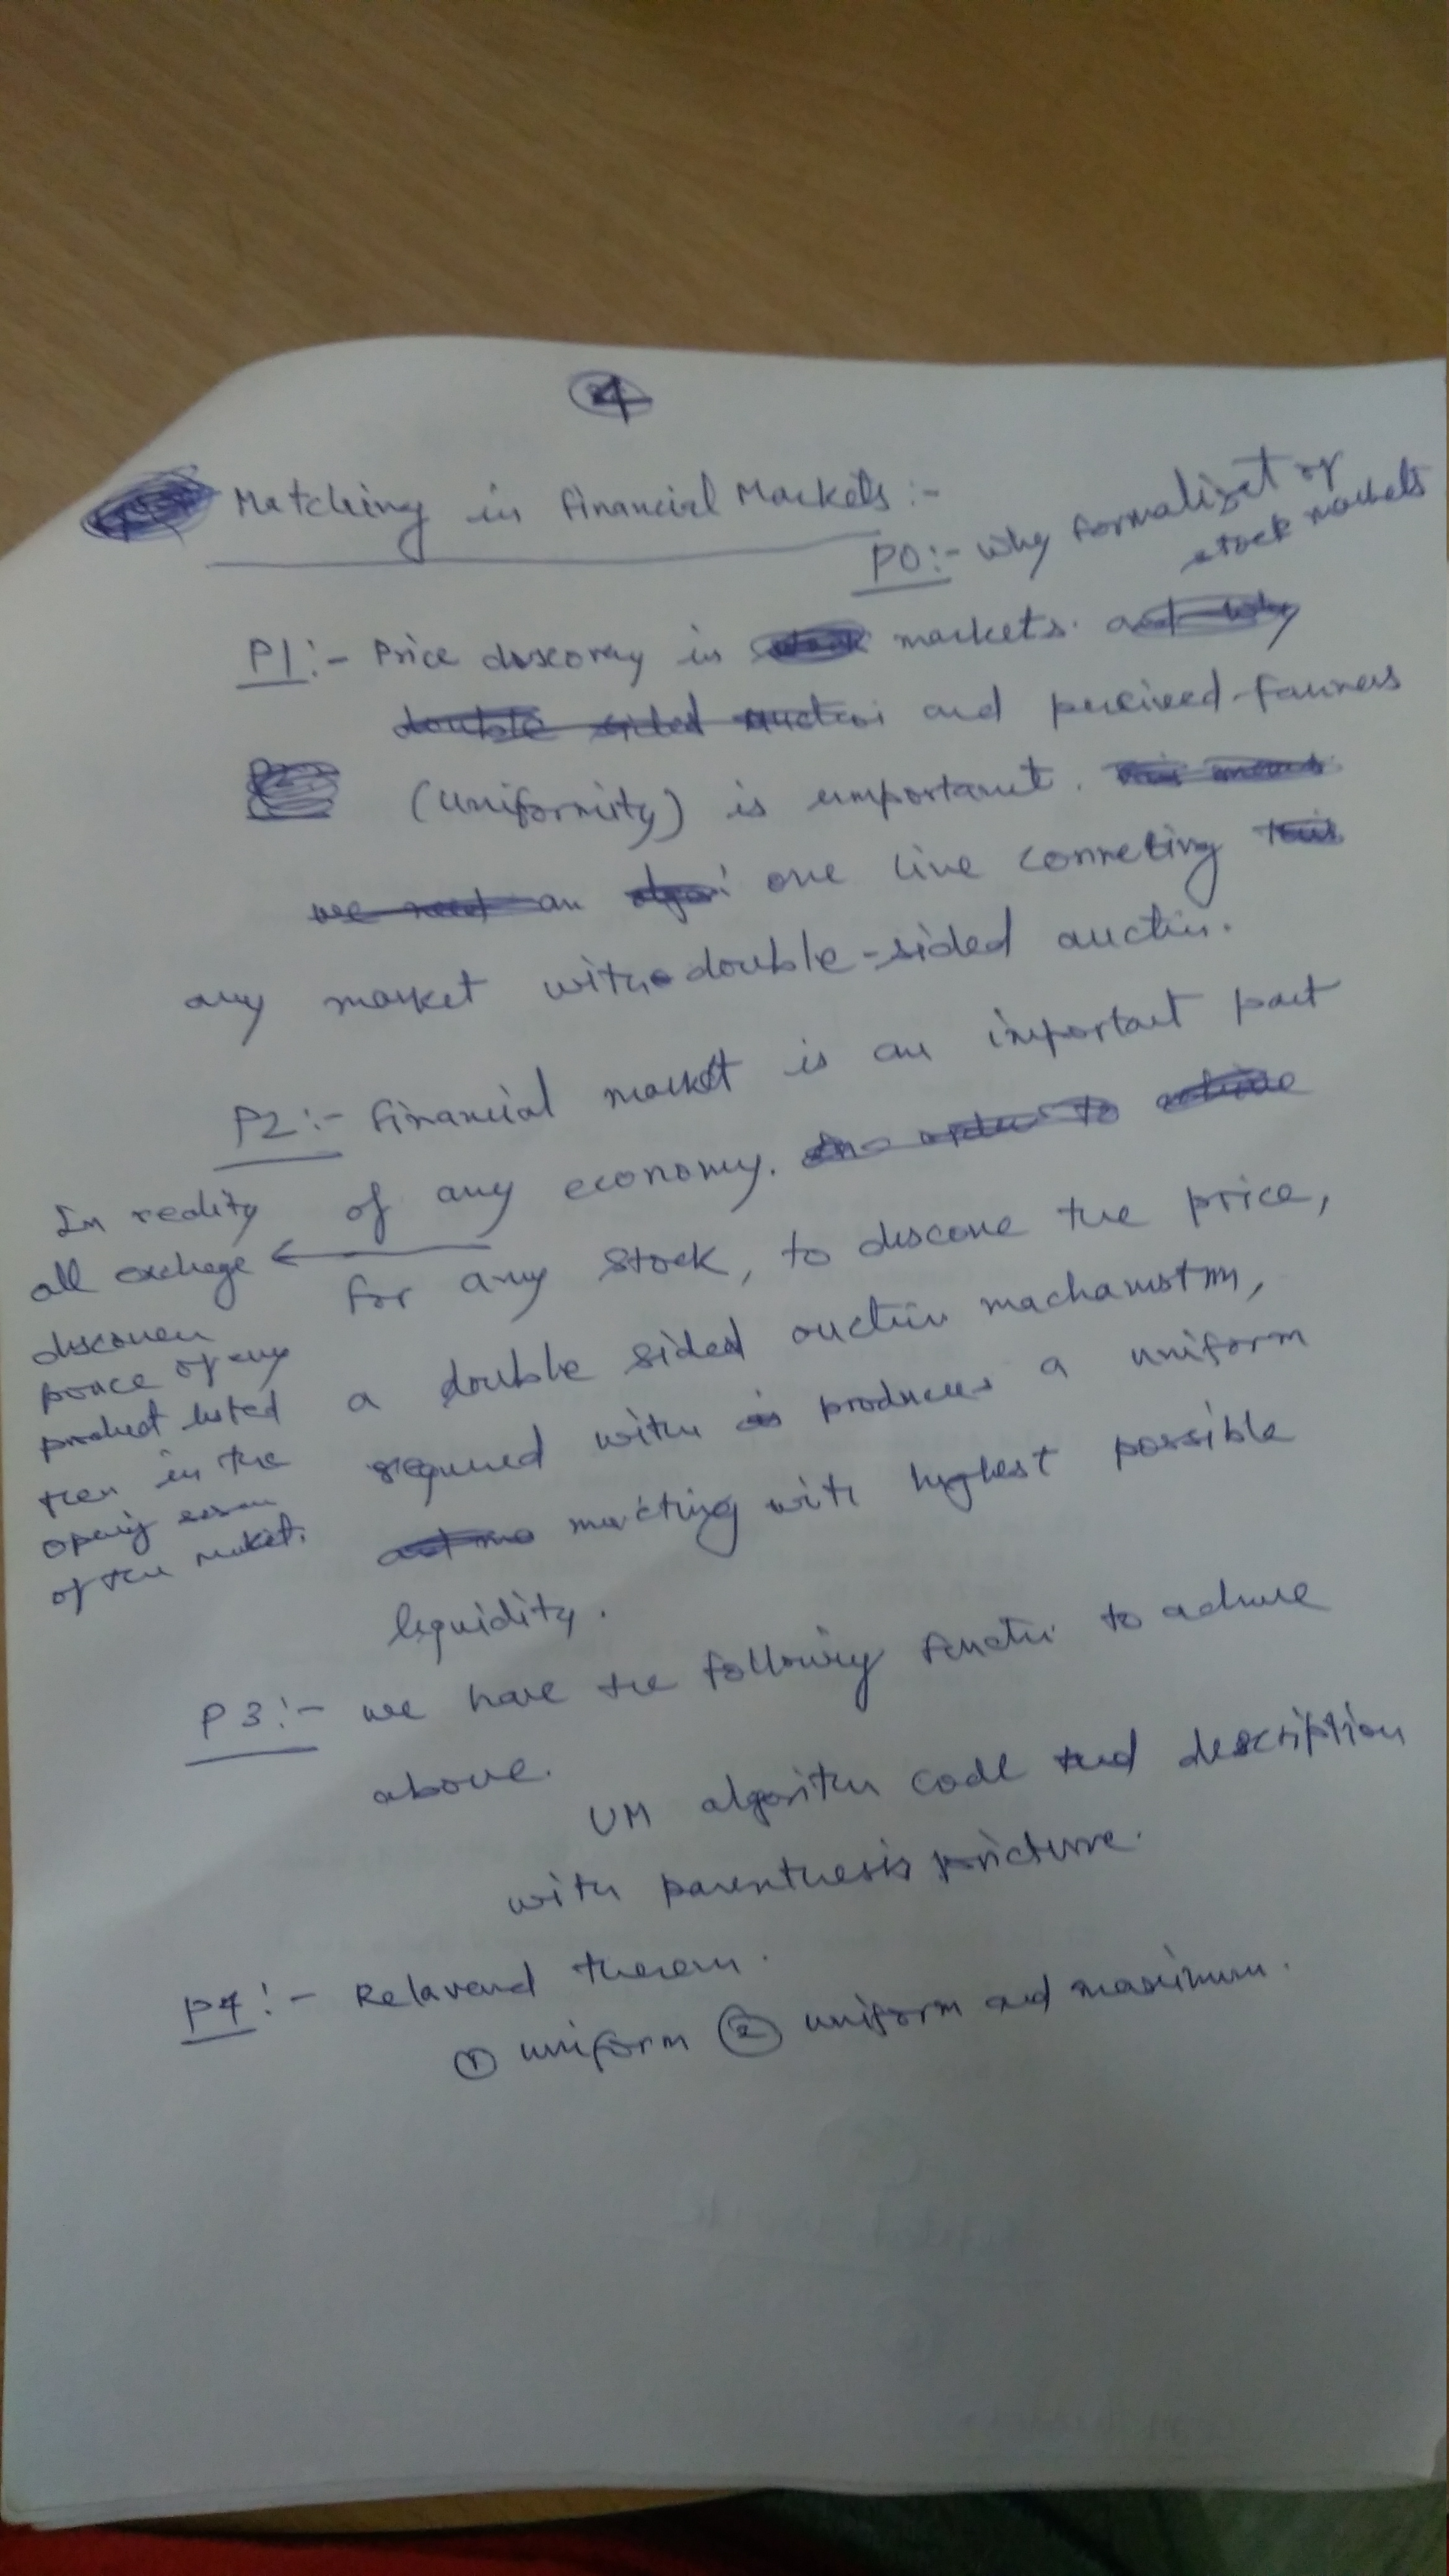 4
Matching in Financial Markets :-
P0:- why formalizat of
stock markets
P1:- Price discovery in markets.
double sided auction and percieved-fairness
(uniformity) is importanct.
we need an one line conneting this
any market with double-sided auctin.
P2:- Financial market is an important part
of any economy.
for any stock, to discove the price,
a double sided auctin machanistm,
required with is produces a uniform
matching with highest possible
liquidity.
In reality
all exchage
discover
price of any
product listed
in the
openig
of the market.
P3:- we have the following functi to achive
above.
UM algorithm code and description
with parenthesis pricture.
P4:- Relavend therem.
① uniform ② uniform and maximum.